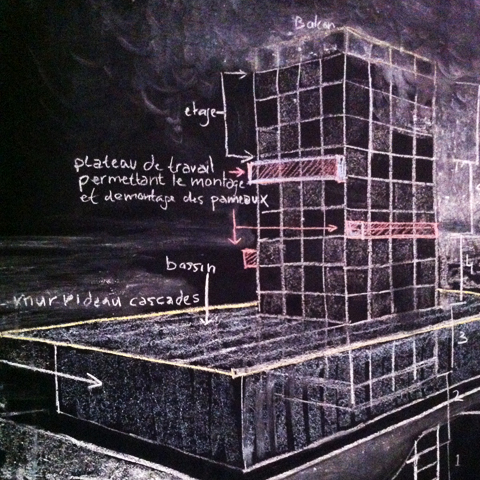 Balcon
etage
plateau de travail
permettant le montage
et demontage des panneaux
bassin
mur rideau cascades
4
3
2
1